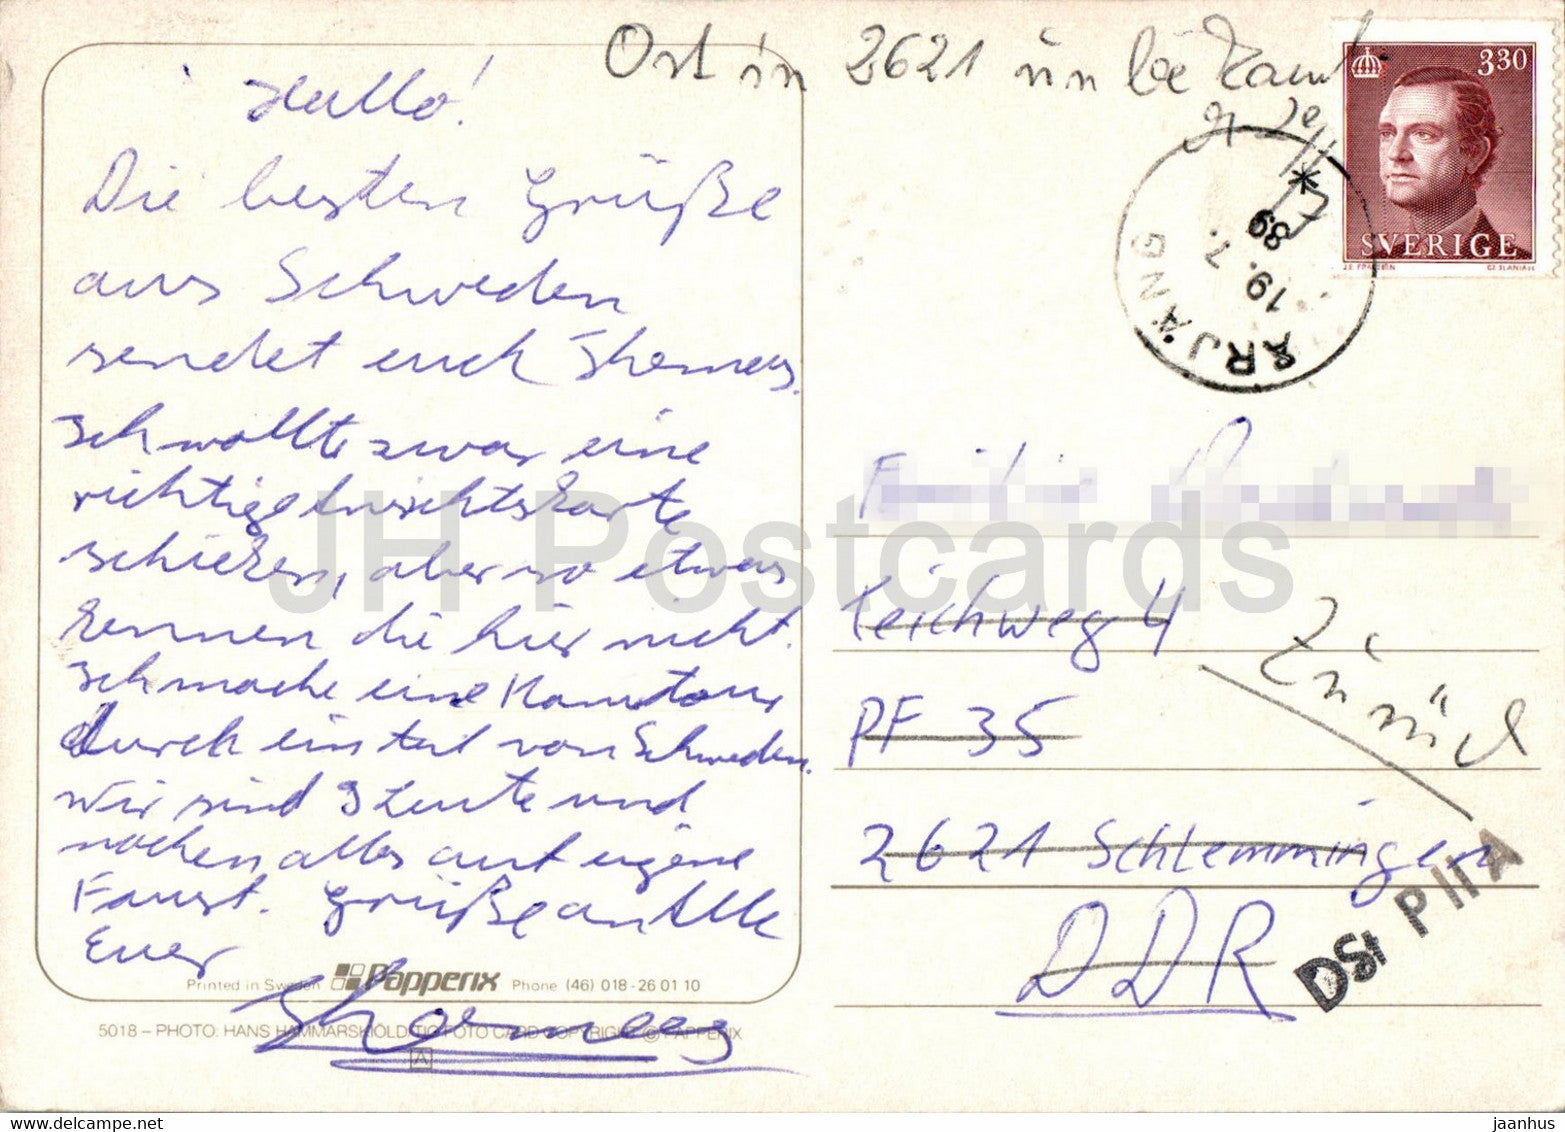 Hallo!
Die besten Grüße
aus Schweden
sendet euch Thomas.
Ich wollte zwar eine
richtige Ansichtskarte
schicken, aber so etwas
kennen die hier nicht.
Ich mache eine Kanutour
durch ein teil von Schweden.
Wir sind 9 Leute und
machen alles auf eigene
Faust. Grüße an Alle
Euer
Thomas
Printed in Sweden Papperix Phone (46) 018-26 01 10
5018 – PHOTO: HANS HAMMARSKIÖLD/TIO FOTO CARD COPYRIGHT © PAPPERIX
A
Ort in 2621
3.30
SVERIGE
CZ.SLANIA sc
ÅRJÄNG
19. 7. 89
*
Teichweg 4
PF 35
2621 Schlemmingen
DDR
Zurück
DSt P II A
JH Postcards
www.delcampe.net
jaanhus